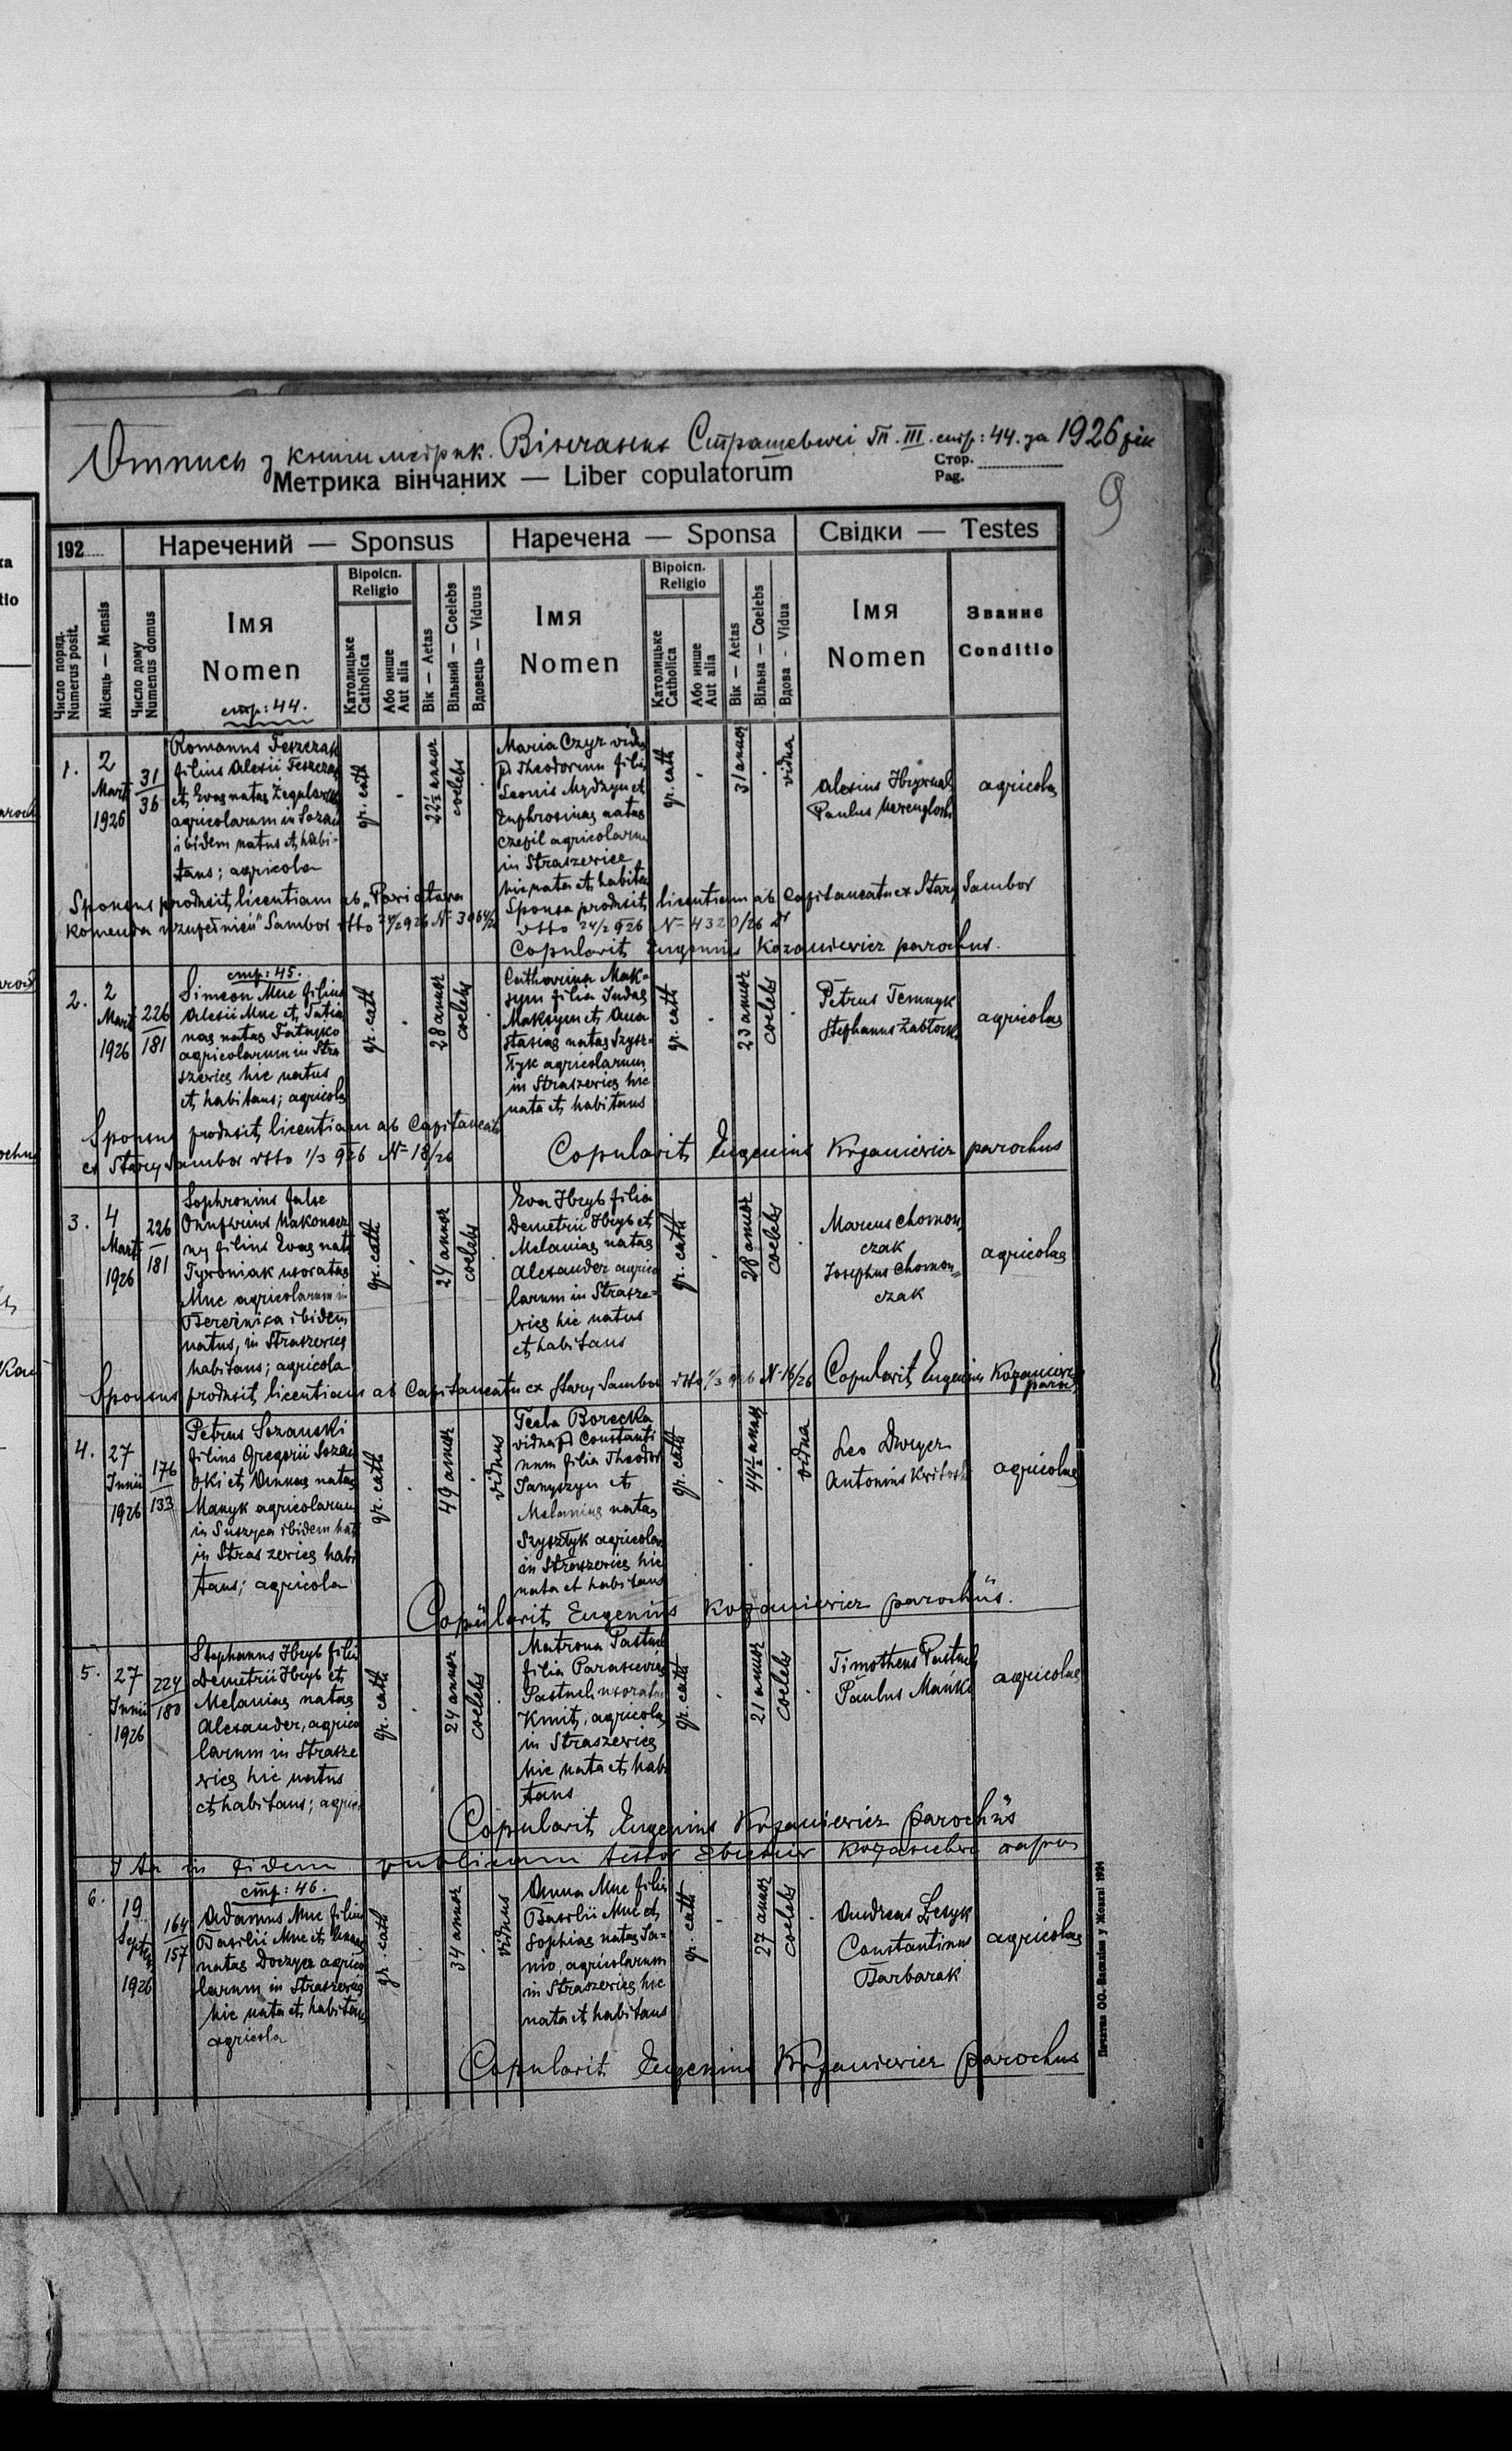 Отпись з книги метрик. Вінчаних Страшевичі Т. III. стр: 44. за 1926 рік
Метрика вінчаних — Liber copulatorum
Стор.
Pag.
9
192
Наречений — Sponsus
Наречена — Sponsa
Свідки — Testes
Число поряд.
Numerus posit.
Місяць — Mensis
Число дому
Numerus domus
Імя
Nomen
стр: 44.
Віроісп.
Religio
Католицьке
Catholica
Або инше
Aut alia
Вік — Aetas
Вільний — Coelebs
Вдовець — Viduus
Імя
Nomen
Віроісп.
Religio
Католицьке
Catholica
Або инше
Aut alia
Вік — Aetas
Вільна — Coelebs
Вдова - Vidua
Імя
Nomen
Званнє
Conditio
1.
2
Mart
1926
31
36
Romanus Feszczak
filius Alexii Feszczak
et Evae natae
agricolarum in Sozań
ibidem natus et habi-
tans; agricola
gr. cath
-
22½ annor
coelebs
Maria Czyz vidua
p Theodorum filia
Leonis et
Euphrosinae natae
agricolarum
in Straszewice
hic nata et habitans
gr. cath
-
31 annor
vidua
Alexius
Paulus
agricolae
Sponsus produxit licentiam ab „Powiatowa
Komenda uzupełnień" Sambor dtto 24/2 926 №
Sponsa produxit licentiam ab Capitaneatu ex Stary Sambor
dtto 24/2 926 № 4320/26
Copulavit Eugenius Kozaniewicz parochus.
2.
2
Mart
1926
226
181
стр: 45.
Simeon Muc filius
Alexii Muc et Tatia
nae natae
agricolarum in Stra
szewice hic natus
et habitans; agricola
gr. cath
28 annor
coelebs
Catharina Mak-
sym filia Judae
Maksym et Ana
stasiae natae Szysz-
tyk agricolarum
in Straszewice hic
nata et habitans
gr. cath
23 annor
coelebs
Petrus Temnyk
Stephanus
agricolae
Sponsus produxit licentiam ab Capitaneatu
ex Stary Sambor dtto 1/3 926 № 18/26
Copulavit Eugenius Kozaniewicz parochus
3.
4
Mart
1926
226
181
Sophronius false
Onufrius Nakonecz
ny filius Evae natae
Tyroniak uxoratae
Muc agricolarum in
Bereżnica ibidem
natus, in Straszewice
habitans; agricola
gr. cath
24 annor
coelebs
Eva Hryb filia
Demetrii Hryb et
Melaniae natae
Alexander agrico
larum in Strasze-
wice hic natus
et habitans
gr. cath
28 annor
coelebs
Marcus Chomon-
czak
Josephus Chomon-
czak
agricolae
Sponsus produxit licentiam ab Capitaneatu ex Stary Sambor dtto 1/3 926 № 16/26
Copulavit Eugenius Kozaniewicz
paroc
4.
27
Junii
1926
176
133
Petrus Sozanski
filius Gregorii Sozan
ski et Annae natae
Manyk agricolarum
in Suszyca ibidem nat
in Straszewice habi
tans; agricola
gr. cath
49 annor
viduus
Tecla Borecka
vidua p Constanti
num filia Theodor
Janyszyn et
Melaniae natae
Szysztyk agricolar
in Straszewice hic
nata et habitans
gr. cath
44½ annor
vidua
Leo Dwyer
Antonius
agricolae
Copulavit Eugenius Kozaniewicz parochus.
5.
27
Junii
1926
224
180
Stephanus Hryb filius
Demetrii Hryb et
Melaniae natae
Alexander, agrico
larum in Strasze
wice hic natus
et habitans; agric
gr. cath
24 annor
coelebs
Matrona Pastuch
filia Parasceviae
Pastuch uxoratae
Kmit, agricolae
in Straszewice
hic nata et habi
tans
gr. cath
21 annor
coelebs
Timotheus Pastuch
Paulus Mańko
agricolae
Copulavit Eugenius Kozaniewicz parochus
Ita in fidem publicam testor
6.
19
Septem
1926
164
157
стр: 46.
Adamus Muc filius
Basilii Muc et Annae
natae agrico
larum in Straszewice
hic nata et habitans
agricola
gr. cath
34 annor
viduus
Anna Muc filia
Basilii Muc et
Sophiae natae Sa-
nio, agricolarum
in Straszewice hic
nata et habitans
gr. cath
27 annor
coelebs
Andreas Lesyk
Constantinus
Barbarak
agricolae
Copulavit Eugenius Kozaniewicz parochus
Печатня ОО. Василіян у Жовкві 1924